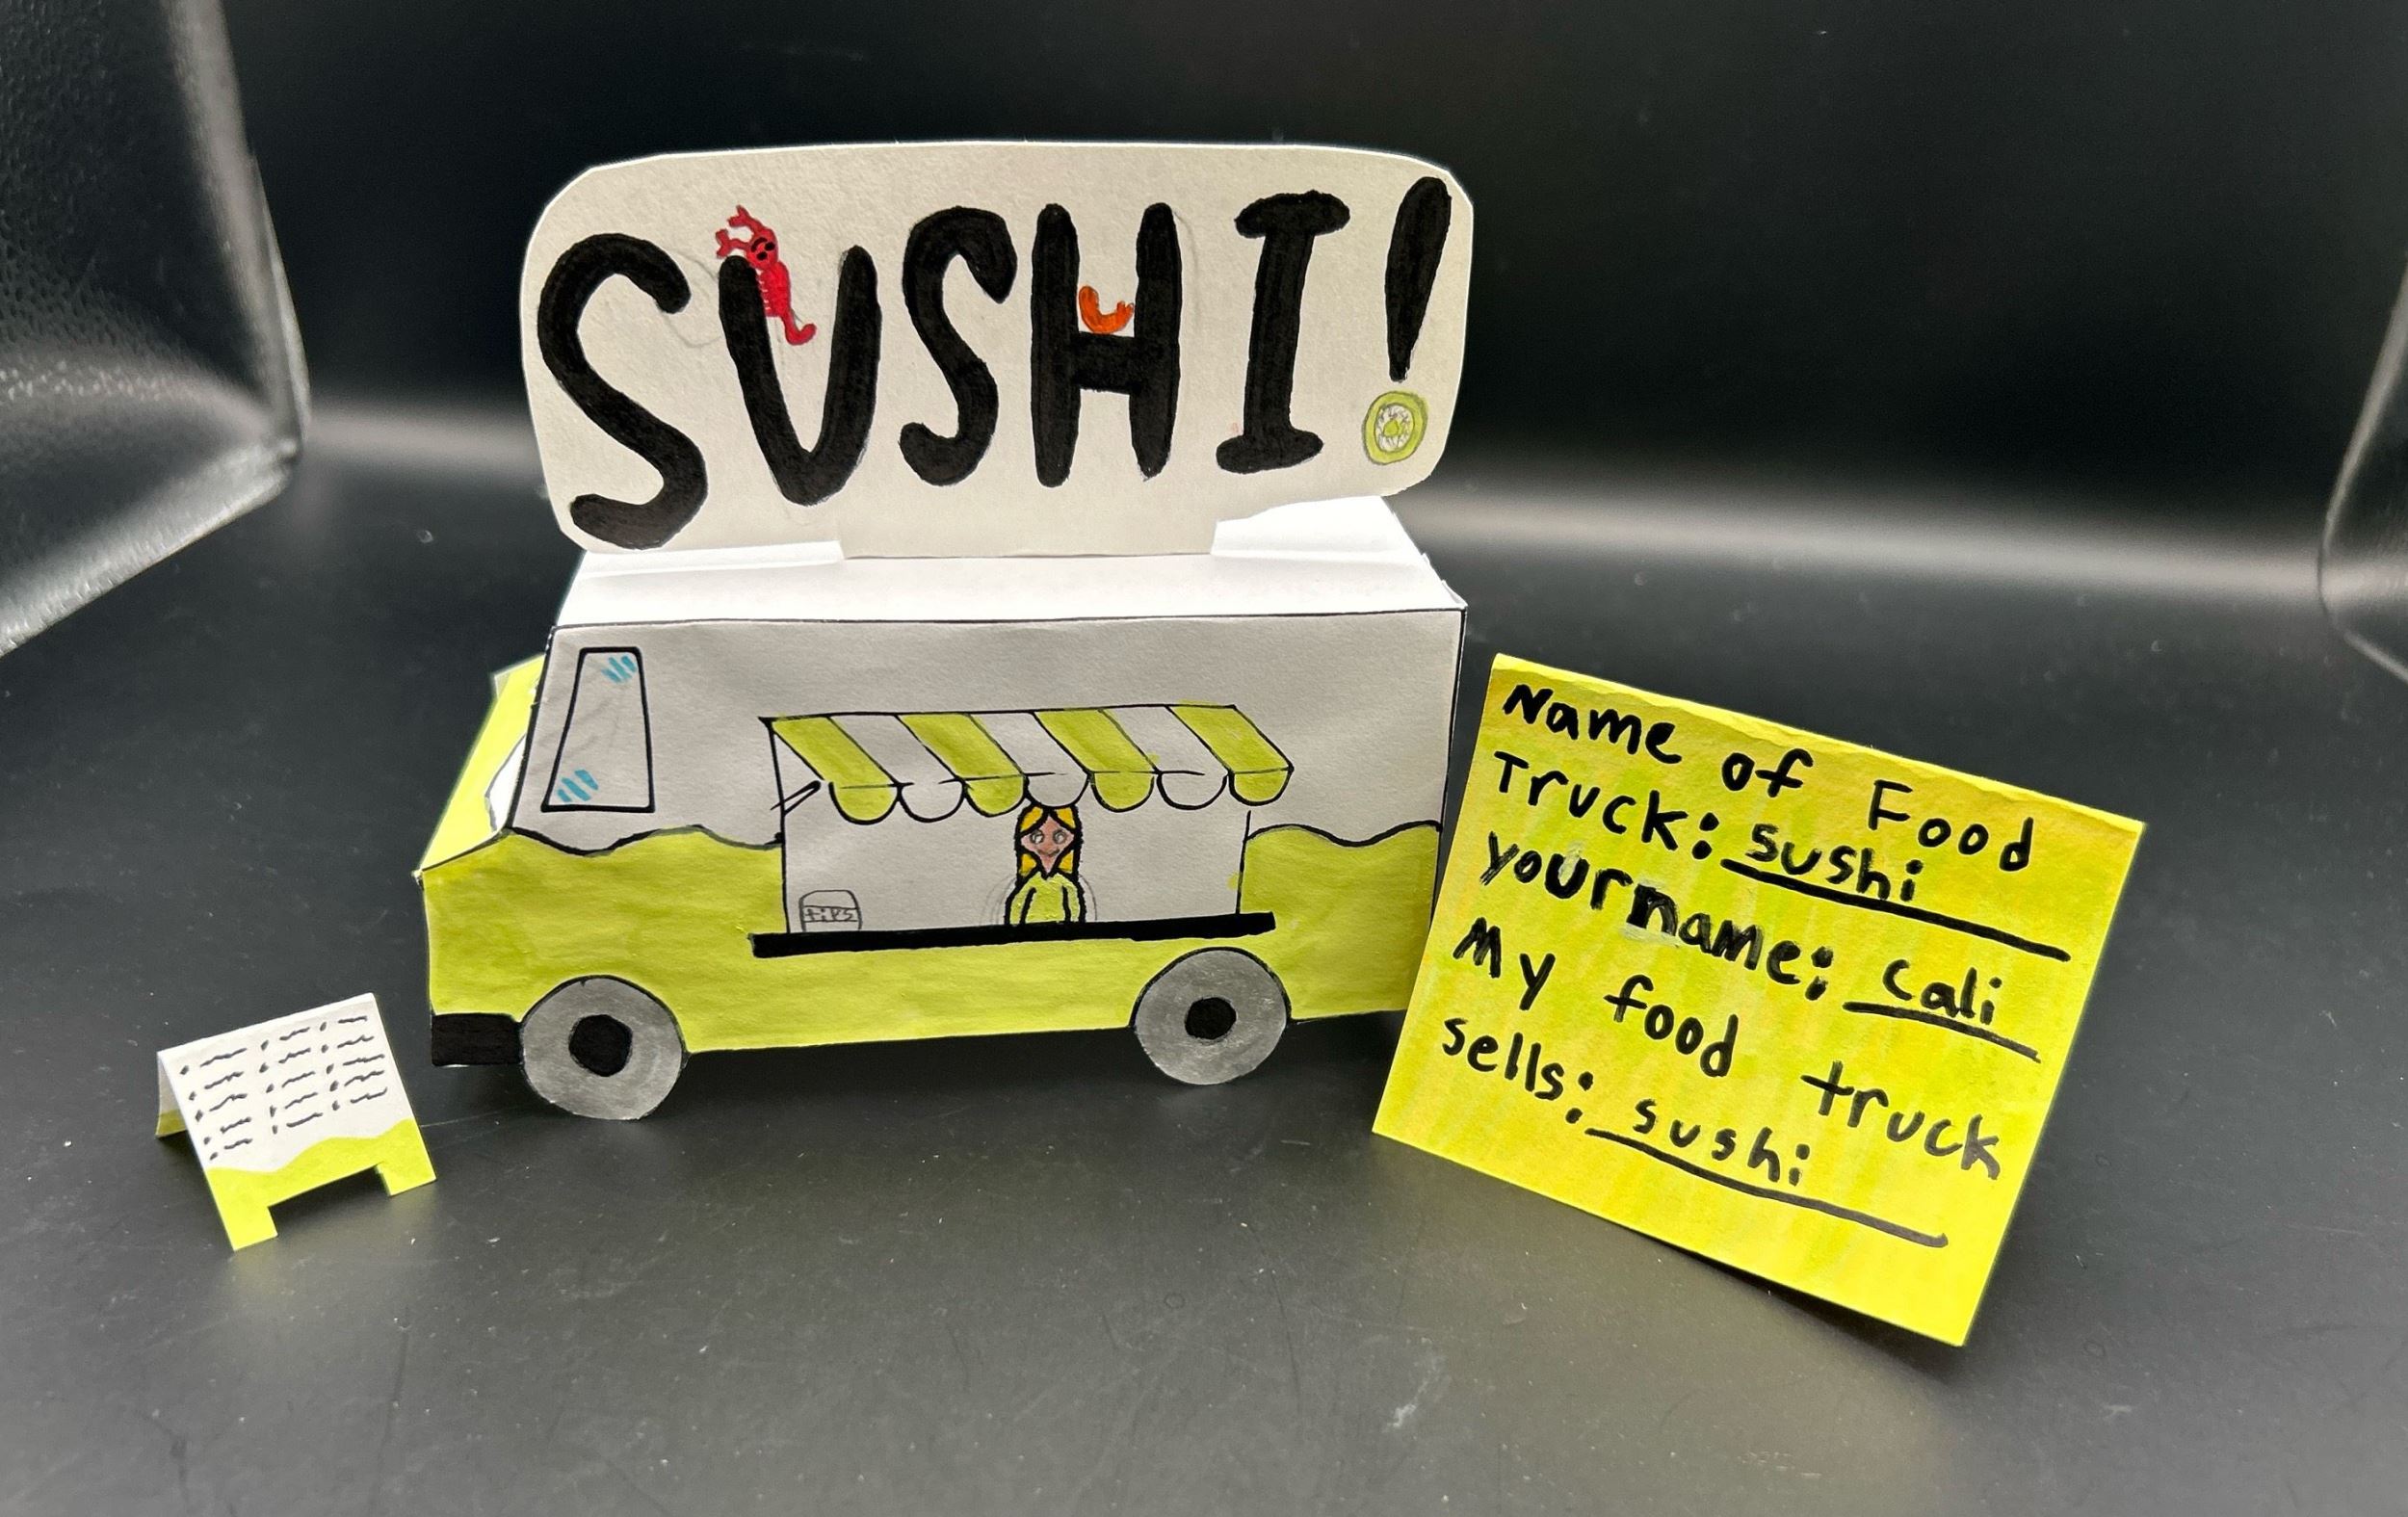 SUSHI!
tips
Name of Food
Truck: sushi
yourname: Cali
My food truck
sells: sushi